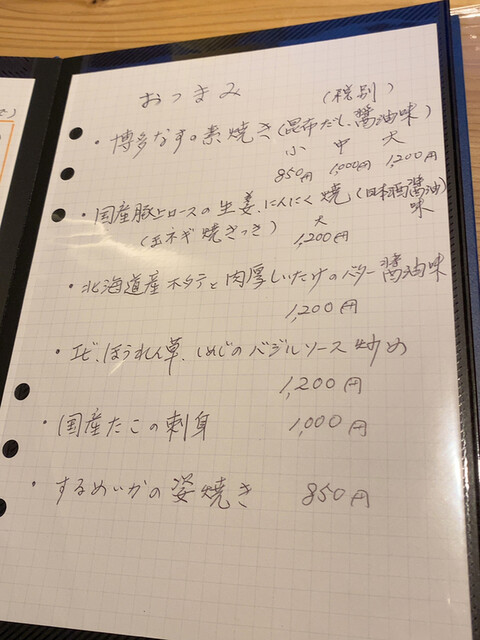 おつまみ
(税別)
・博多なすの素焼き(昆布だし、醤油味)
小 中 大
850円 1,000円 1,200円
・国産豚上ロースの生姜、にんにく焼(日本酒醤油味)
(玉ネギ焼きつき) 大
1,200円
・北海道産ホタテと肉厚しいたけのバター醤油味
1,200円
・エビ、ほうれん草、しめじのバジルソース炒め
1,200円
・国産たこの刺身 1,000円
・するめいかの姿焼き 850円